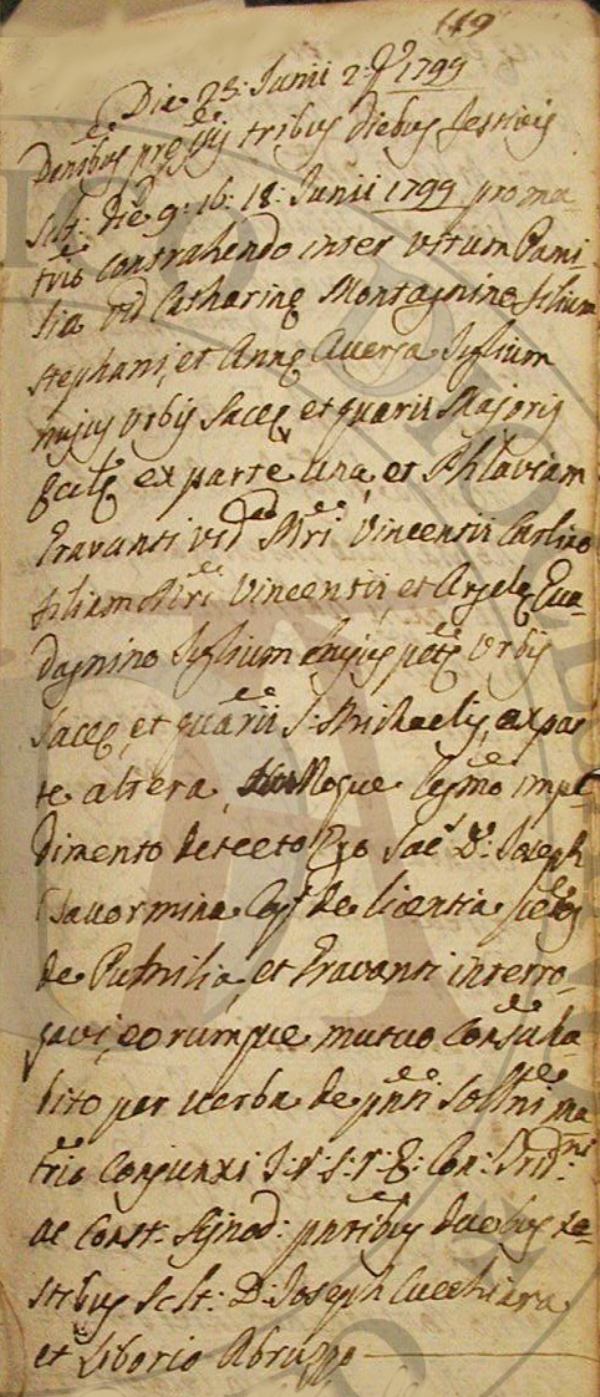 119
Die 23: Junii 2:ª Indis 1799
Denũbus previis tribus diebus festivis
sclt: die 9: 16: 18: Junii 1799 pro ma-
trio contrahendo inter Vitum Pumi-
lia vid Catharinę Montagnino filium
Stephani, et Annę Aversa Jugalium
hujus Urbis Saccę et quarii Majoris
Eccłę ex parte una, et Phlaviam
Gravanti vid Mri Vincentii Carlino
filiam Mri Vincentii et Angelę Gua-
dagnino Jugalium hujus ptę Urbis
Saccę, et quarii S: Michaelis, ex par
te altera, Nulloque legmo impe-
dimento detecto Ego Sac D: Joseph
Tavormina Capł de licentia
de Pumilia, et Gravanti interro-
gavi, eorumque mutuo Consu ha-
bito per verba de pnti Sollni ma
trio Conjunxi J: S: E: Con: Trid:
ac Const: Synod: pntibus duobus te-
stibus sclt: D: Joseph Cucchiara
et Liborio Abruzzo